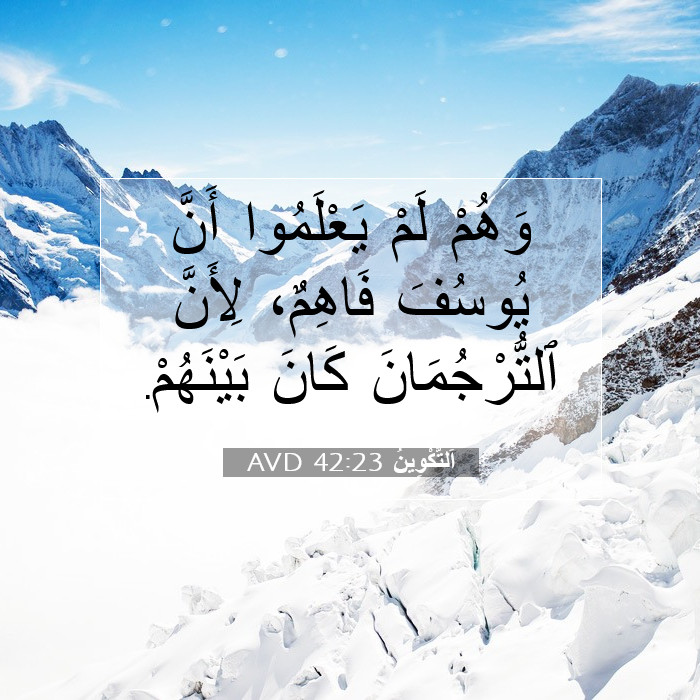 وَهُمْ لَمْ يَعْلَمُوا أَنَّ
يُوسُفَ فَاهِمٌ، لِأَنَّ
ٱلتُّرْجُمَانَ كَانَ بَيْنَهُمْ.
اَلتَّكْوِينُ 42:23 AVD